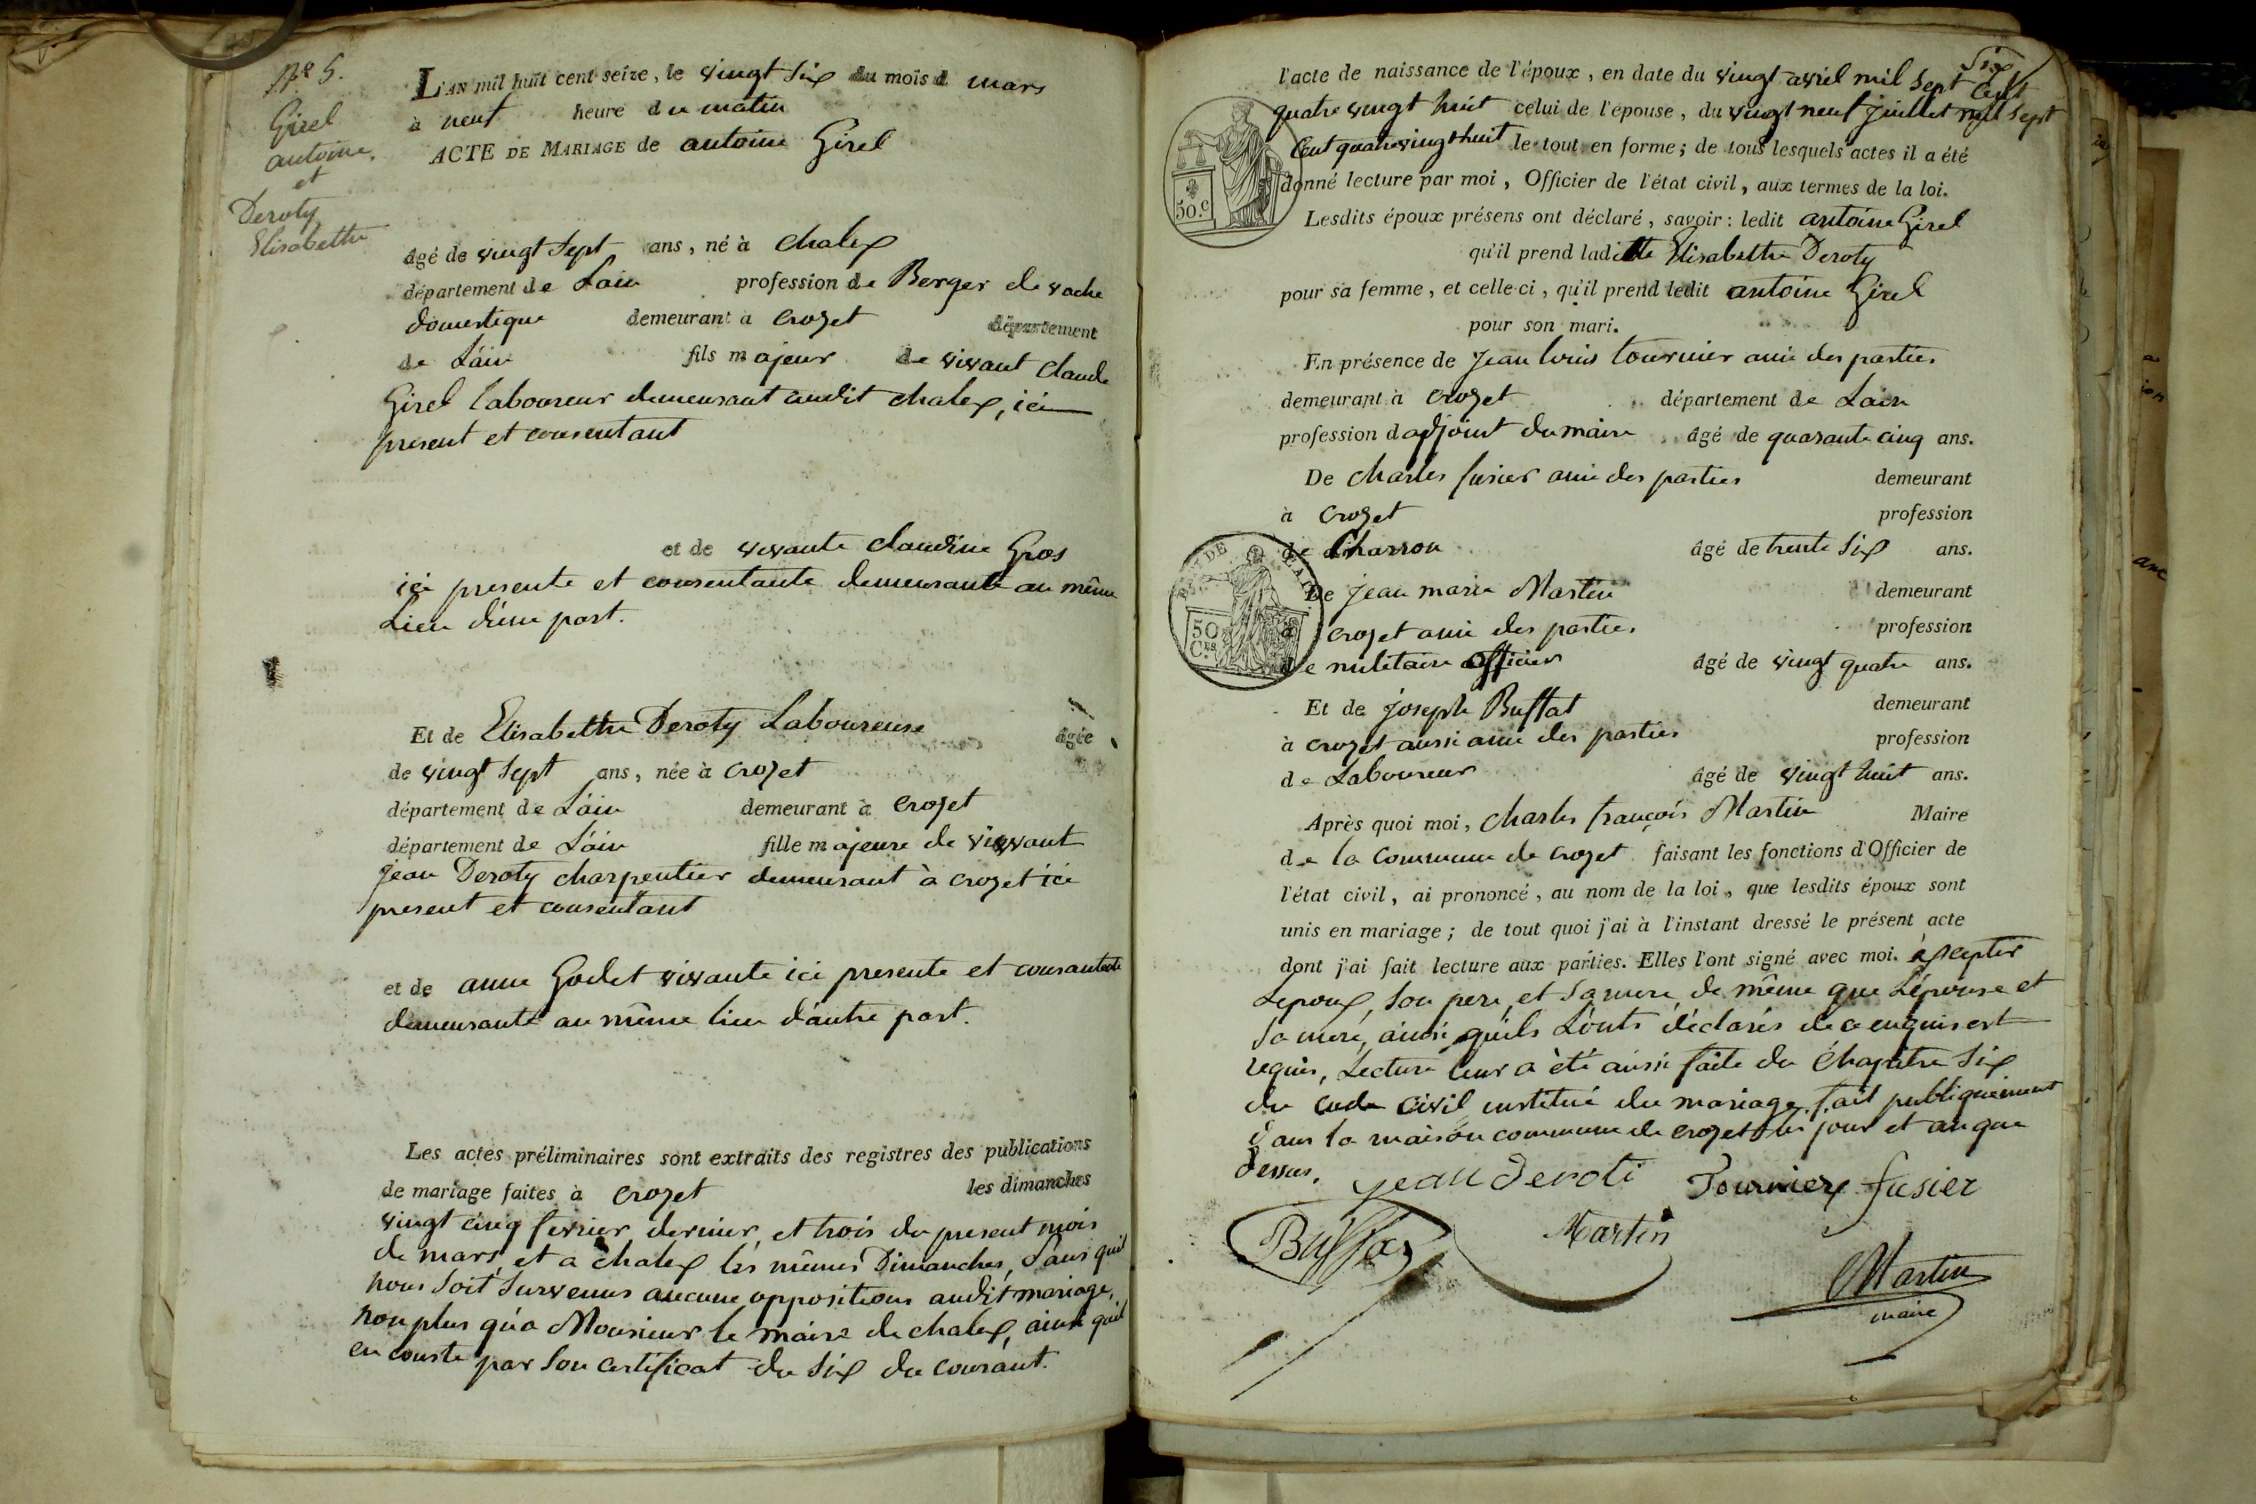 N.º 5.
Girel
antoine,
et
Deroty
Elisabethe
L'AN mil huit cent seize, le vingt Six du mois d mars
à neuf heure du matin
ACTE DE MARIAGE de antoine Girel
âgé de vingt Sept ans, né à Chalex
département de Lain profession de Berger de vache
domestique demeurant à Crozet département
de L'ain fils majeur de vivant Claude
Girel Laboureur demeurant audit Chalex, ici
present et consentant
et de vivante Claudine Gros
ici presente et consentante demeurante au même
Lieu d'une part.
Et de Elisabethe Deroty Laboureuse âgée
de vingt Sept ans, née à Crozet
département de L'ain demeurant à Crozet
département de L'ain fille majeure de vivant
Jean Deroty charpentier demeurant à Crozet ici
present et consentant
et de anne Godet vivante ici presente et consantante
demeurante au même lieu d'autre part.
Les actes préliminaires sont extraits des registres des publications
de mariage faites à Crozet les dimanches
vingt cinq fevrier dernier, et trois du present mois
de mars, et a Chalex les mêmes Dimanches, Sans quil
nous Soit Survenus aucune oppositions audit mariage,
non plus qu'a Monsieur le maire de Chalex, ainsi quil
en conste par Son certificat du Six du courant.
Six
l'acte de naissance de l'époux, en date du vingt avril mil Sept Cent
quatre vingt huit celui de l'épouse, du vingt neuf juillet mil Sept
Cent quatre vingt huit le tout en forme; de tous lesquels actes il a été
donné lecture par moi, Officier de l'état civil, aux termes de la loi.
50.c
Lesdits époux présens ont déclaré, savoir: ledit antoine Girel
qu'il prend ladite Elisabethe Deroty
pour sa femme, et celle-ci, qu'il prend ledit antoine Girel
pour son mari.
En présence de Jean Louis Tournier ami des parties
demeurant à Crozet département de Lain
profession d'adjoint du maire âgé de quarante cinq ans.
De Charles fusier ami des parties demeurant
à Crozet profession
de Charron âgé de trente Six ans.
DEP. DE L'AIN
50 C.es
De jean marie Martin demeurant
à Crozet ami des parties profession
de militaire officier âgé de vingt quatre ans.
Et de joseph Buffat demeurant
à Crozet aussi ami des parties profession
de Laboureur âgé de vingt huit ans.
Après quoi moi, Charles françois Martin Maire
de la Commune de Crozet faisant les fonctions d'Officier de
l'état civil, ai prononcé, au nom de la loi, que lesdits époux sont
unis en mariage; de tout quoi j'ai à l'instant dressé le présent acte
dont j'ai fait lecture aux parties. Elles l'ont signé avec moi. excepter
Lepoux, Son pere, et Sa mere, de même que L'épouse et
Sa mere, ainsi qu'ils L'onts déclarés de ce enquis et
requis, Lecture leur a été aussi faite du Chapitre Six
du Code Civil institué du mariage, fait publiquement
dans la maison commune de Crozet les jour et an que
dessus.
jean deroti Tournier fusier
Buffat Martin
Martin
maire